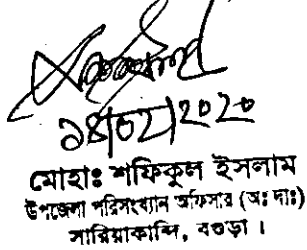 ১৪|০২|২০২০
মোহাঃ শফিকুল ইসলাম
উপজেলা পরিসংখ্যান অফিসার (অঃ দাঃ)
সারিয়াকান্দি, বগুড়া ।